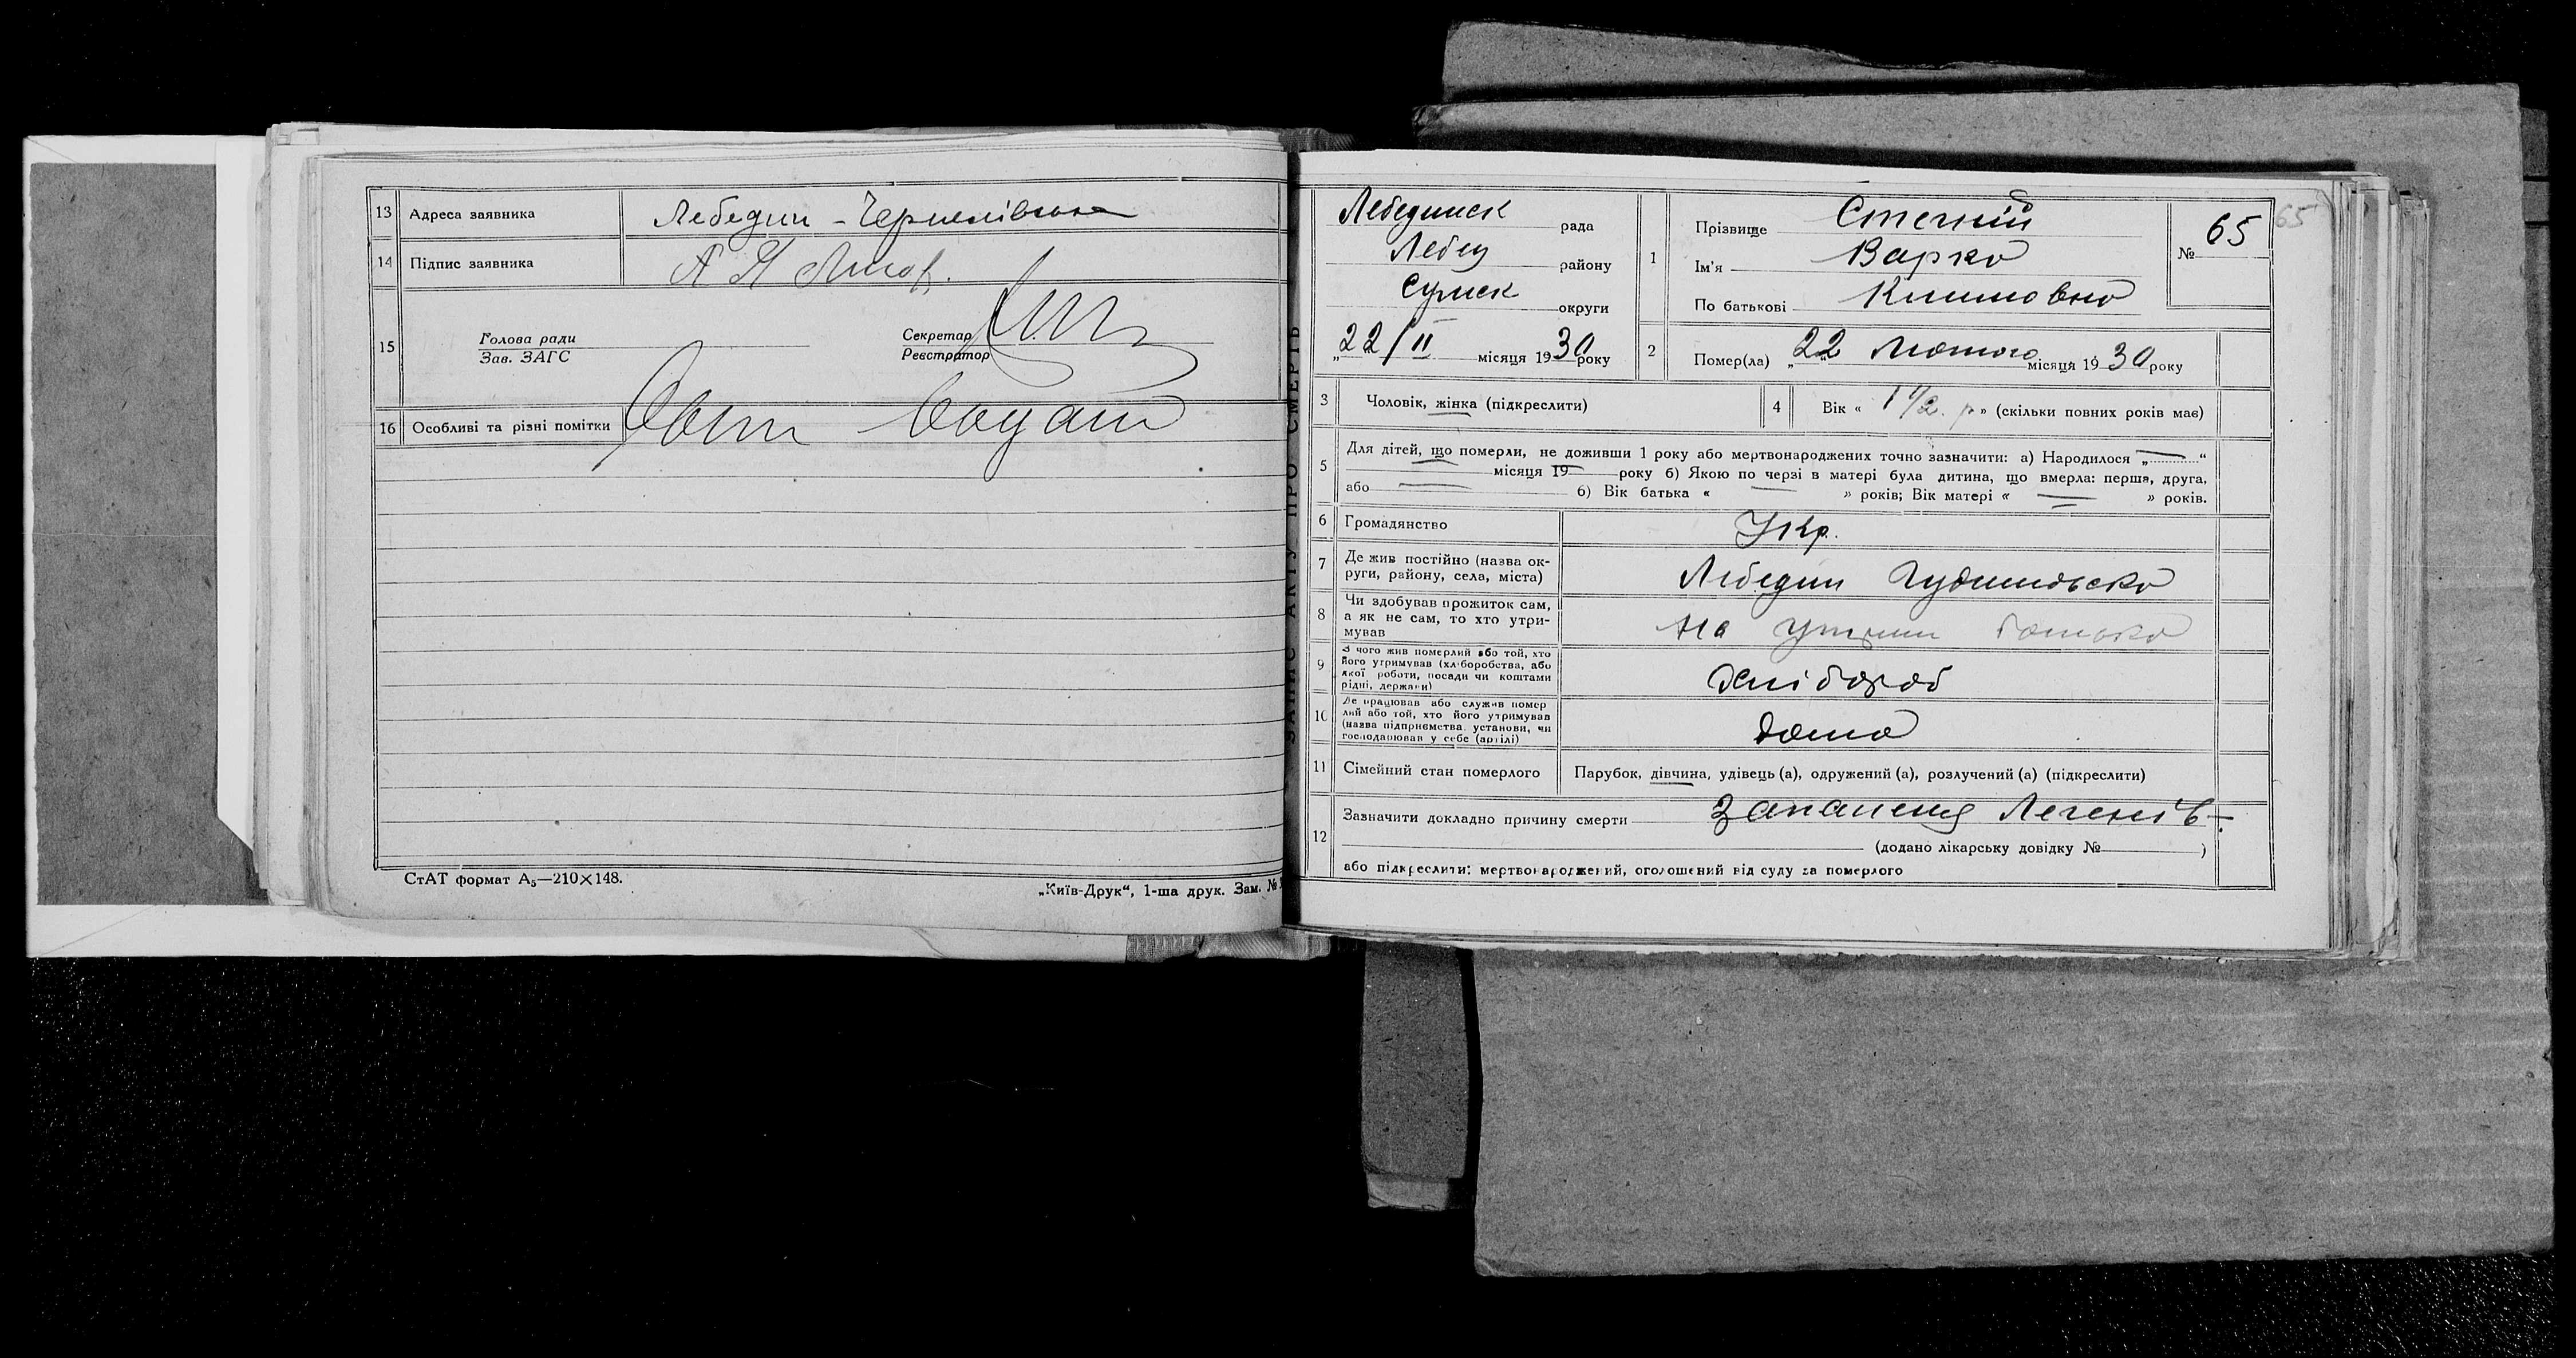 13 Адреса заявника Лебедин - Чернелівська
14 Підпис заявника
15 Голова ради
Зав. ЗАГС
Секретар
Реєстратор
16 Особливі та різні помітки
СтАТ формат А5—210×148.
„Київ-Друк“, 1-ша друк. Зам. №
ЗАПИС АКТУ ПРО СМЕРТЬ
Лебединск рада
Лебед району
Сумск округи
„22/II місяця 1930 року
1 Прізвище
Ім'я Варка
По батькові
№ 65
65
2 Помер(ла) „22 Лютого місяця 1930 року
3 Чоловік, жінка (підкреслити)
4 Вік « 1 1/2 р » (скільки повних років має)
5 Для дітей, що померли, не доживши 1 року або мертвонароджених точно зазначити: а) Народилося „ “
місяця 19 року б) Якою по черзі в матері була дитина, що вмерла: перша, друга,
або б) Вік батька « » років; Вік матері « » років.
6 Громадянство Укр.
7 Де жив постійно (назва округи, району, села, міста) Лебедин
8 Чи здобував прожиток сам,
а як не сам, то хто утримував
На утрим батька
9 З чого жив померлий або той, хто
його утримував (хліборобства, або
якої роботи, посади чи коштами
рідні, держави)
Хлібороб
10 Де працював або служив помер
лий або той, хто його утримував
(назва підприємства, установи, чи
господарював у себе (артілі)
дома
11 Сімейний стан померлого Парубок, дівчина, удівець (а), одружений (а), розлучений (а) (підкреслити)
12 Зазначити докладно причину смерти Запалення Легенів
(додано лікарську довідку № )
або підкреслити: мертвонароджений, оголошений від суду за померлого